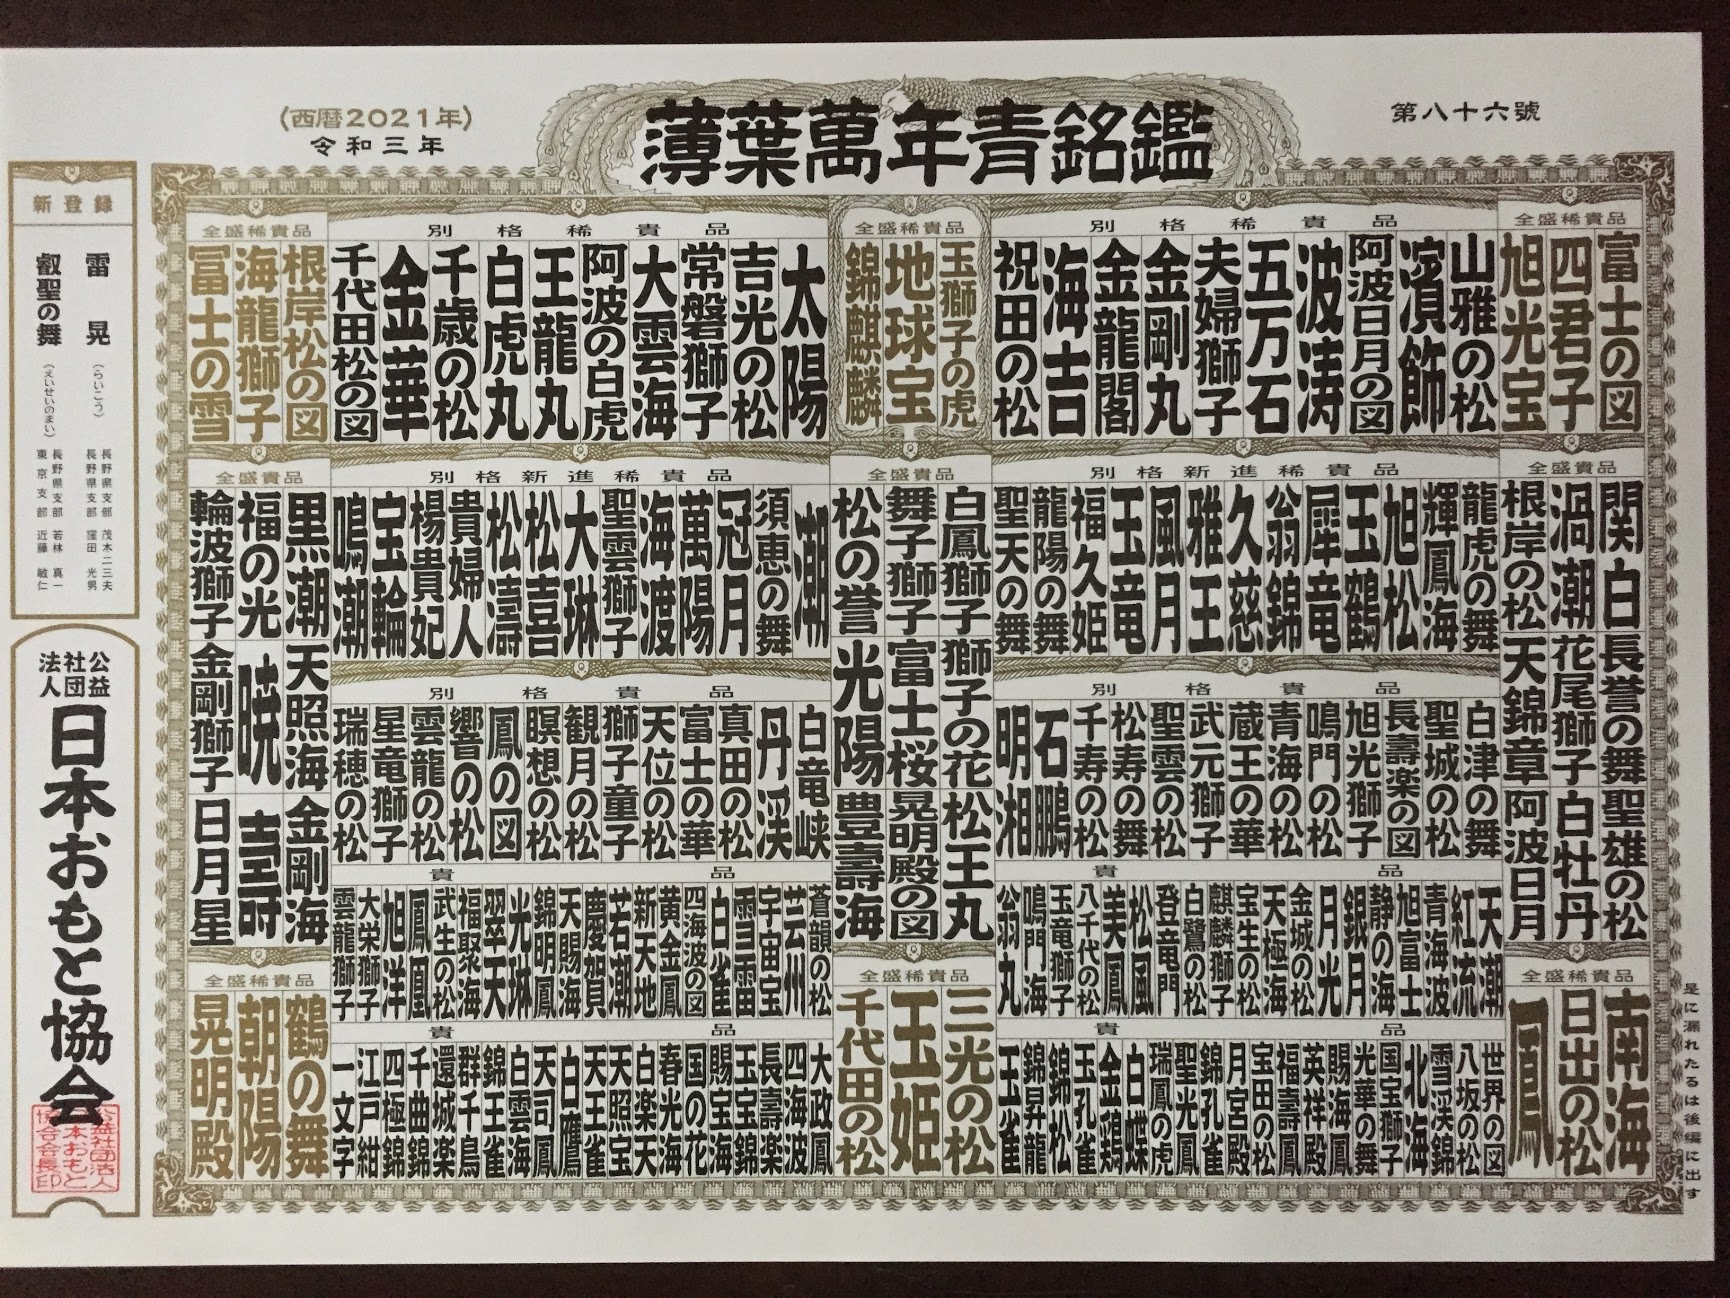 第八十六號
薄葉萬年青銘鑑
(西暦2021年)
令和三年
全盛稀貴品
富士の図
四君子
旭光宝
別格稀貴品
山雅の松
濱飾
阿波日月の図
波涛
五万石
夫婦獅子
金剛丸
金龍閣
海吉
祝田の松
全盛稀貴品
玉獅子の虎
地球宝
錦麒麟
別格稀貴品
太陽
吉光の松
常磐獅子
大雲海
阿波の白虎
王龍丸
白虎丸
千歳の松
金華
千代田松の図
全盛稀貴品
根岸松の図
海龍獅子
冨士の雪
全盛貴品
関白
渦潮
根岸の松
長誉の舞
花尾獅子
天錦章
聖雄の松
白牡丹
阿波日月
別格新進稀貴品
龍虎の舞
輝鳳海
旭松
玉鶴
犀竜
翁錦
久慈
雅王
風月
玉竜
福久姫
龍陽の舞
聖天の舞
全盛貴品
白鳳獅子
舞子獅子
松の誉
獅子の花
富士桜
光陽
松王丸
晃明殿の図
豊壽海
別格新進稀貴品
潮
須恵の舞
冠月
萬陽
海渡
聖雲獅子
大琳
松喜
松濤
貴婦人
楊貴妃
宝輪
鳴潮
全盛貴品
黒潮
福の光
輪波獅子
天照海
暁
金剛獅子
金剛海
壽
日月星
別格貴品
白津の舞
聖城の松
長壽楽の図
旭光獅子
鳴門の松
青海の松
蔵王の華
武元獅子
聖雲の松
松寿の舞
千寿の松
石鵬
明湘
別格貴品
白竜峡
丹渓
真田の松
富士の華
天位の松
獅子童子
観月の松
瞑想の松
鳳の図
響の松
雲龍の松
星竜獅子
瑞穂の松
貴品
天潮
紅流
青海波
旭富士
静の海
銀月
月光
金城の松
天極海
宝生の松
麒麟獅子
白鷺の松
登竜門
松風
美鳳
八千代の松
玉竜獅子
鳴門海
翁丸
貴品
蒼韻の松
芸州
宇宙宝
雨雷
白雀
四海波の図
黄金鳳
新天地
若潮
慶賀
天賜海
錦明鳳
光琳
翠天
福聚海
武生の松
鳳凰
旭洋
大栄獅子
雲龍獅子
全盛稀貴品
南海
日出の松
鳳
貴品
世界の図
八坂の松
雪渓錦
北海
国宝獅子
光華の舞
賜海鳳
英祥殿
福壽鳳
宝田の松
月宮殿
錦孔雀
聖光鳳
瑞鳳の虎
白蝶
金鶏
玉孔雀
錦松
錦昇龍
玉雀
全盛稀貴品
三光の松
玉姫
千代田の松
貴品
大政鳳
四海波
長壽楽
玉宝錦
賜宝海
国の花
春光海
白楽天
天照宝
天王雀
白鷹
天司鳳
白雲海
錦王雀
群千鳥
還城楽
千曲錦
四極錦
江戸紺
一文字
全盛稀貴品
鶴の舞
朝陽
晃明殿
是に漏れたるは後編に出す
新登録
雷晃
(らいこう)
長野県支部 茂木二三夫
長野県支部 窪田光男
叡聖の舞
(えいせいのまい)
長野県支部 若林真一
東京支部 近藤敏仁
公益社団法人
日本おもと協会
公益社団法人
日本おもと
協会会長印